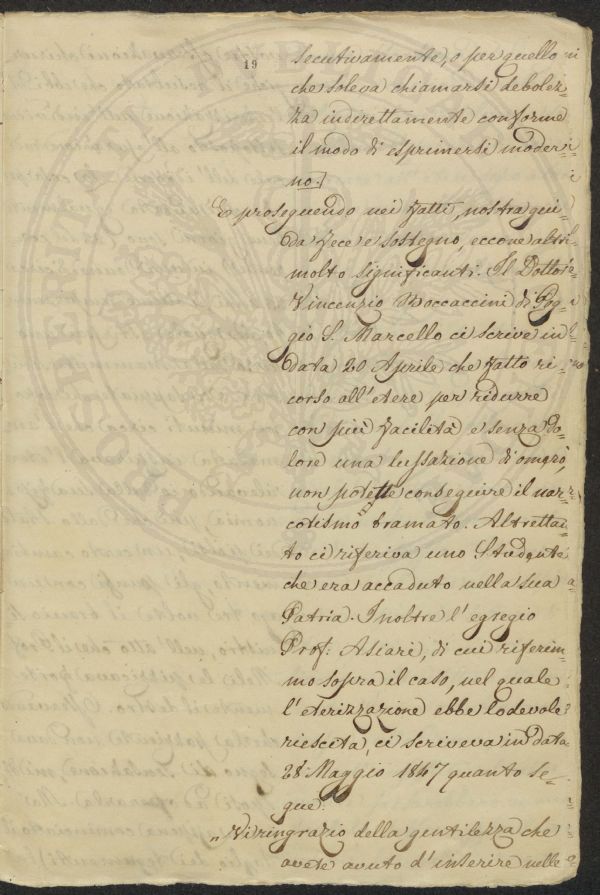 19
secutivamente, o per quello
che soleva chiamarsi debolez=
za indirettamente conforme
il modo di esprimersi moder=
no.]
E proseguendo nei fatti, nostra gui=
da fece e sostegno, eccone altri
molto significanti. Il Dottore
Vincenzio Boccaccini di Pog=
gio S. Marcello ci scrive in
data 20 Aprile che fatto ri=
corso all'etere per ridurre
con più facilità e senza do=
lore una lussazione d'omero,
non potette conseguire il nar=
cotismo bramato. Altrettan=
to ci riferiva uno Studente
che era accaduto nella sua
Patria. Inoltre l'egregio
Prof: Asiari, di cui riferim=
mo sopra il caso, nel quale
l'eterizzazione ebbe lodevole
riescita, ci scriveva in data
28 Maggio 1847 quanto se=
gue.
„ Vi ringrazio della gentilezza che
avete avuto d'inserire nelle